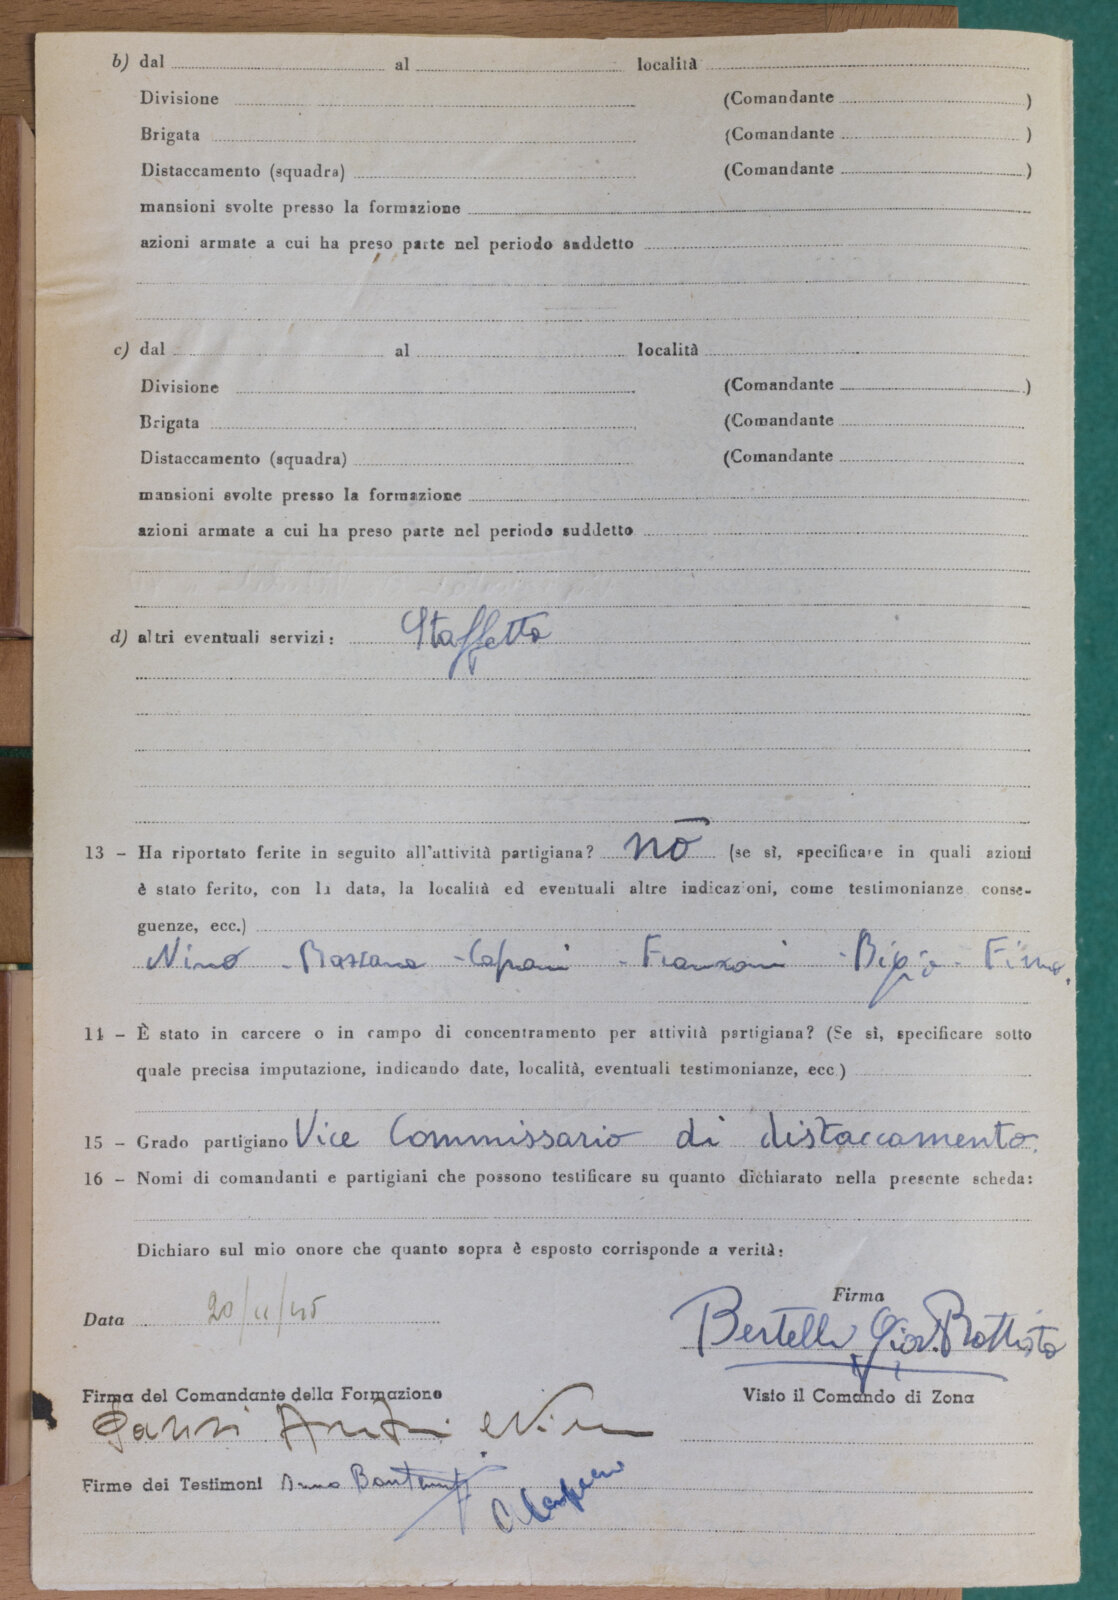 b) dal al località
Divisione (Comandante )
Brigata (Comandante )
Distaccamento (squadra) (Comandante )
mansioni svolte presso la formazione
azioni armate a cui ha preso parte nel periodo suddetto
c) dal al località
Divisione (Comandante )
Brigata (Comandante
Distaccamento (squadra) (Comandante
mansioni svolte presso la formazione
azioni armate a cui ha preso parte nel periodo suddetto
d) altri eventuali servizi: Staffetta
13 – Ha riportato ferite in seguito all'attività partigiana? nō (se sì, specificare in quali azioni
è stato ferito, con la data, la località ed eventuali altre indicazioni, come testimonianze conse-
guenze, ecc.)
Nino - - Caprani - Franzoni - Bigio -
14 – È stato in carcere o in campo di concentramento per attività partigiana? (Se sì, specificare sotto
quale precisa imputazione, indicando date, località, eventuali testimonianze, ecc.)
15 – Grado partigiano Vice Commissario di distaccamento.
16 – Nomi di comandanti e partigiani che possono testificare su quanto dichiarato nella presente scheda:
Dichiaro sul mio onore che quanto sopra è esposto corrisponde a verità:
Firma
Data 20/11/45
Bertelli Giov. Battista
Firma del Comandante della Formazione Visto il Comando di Zona
Firme dei Testimoni